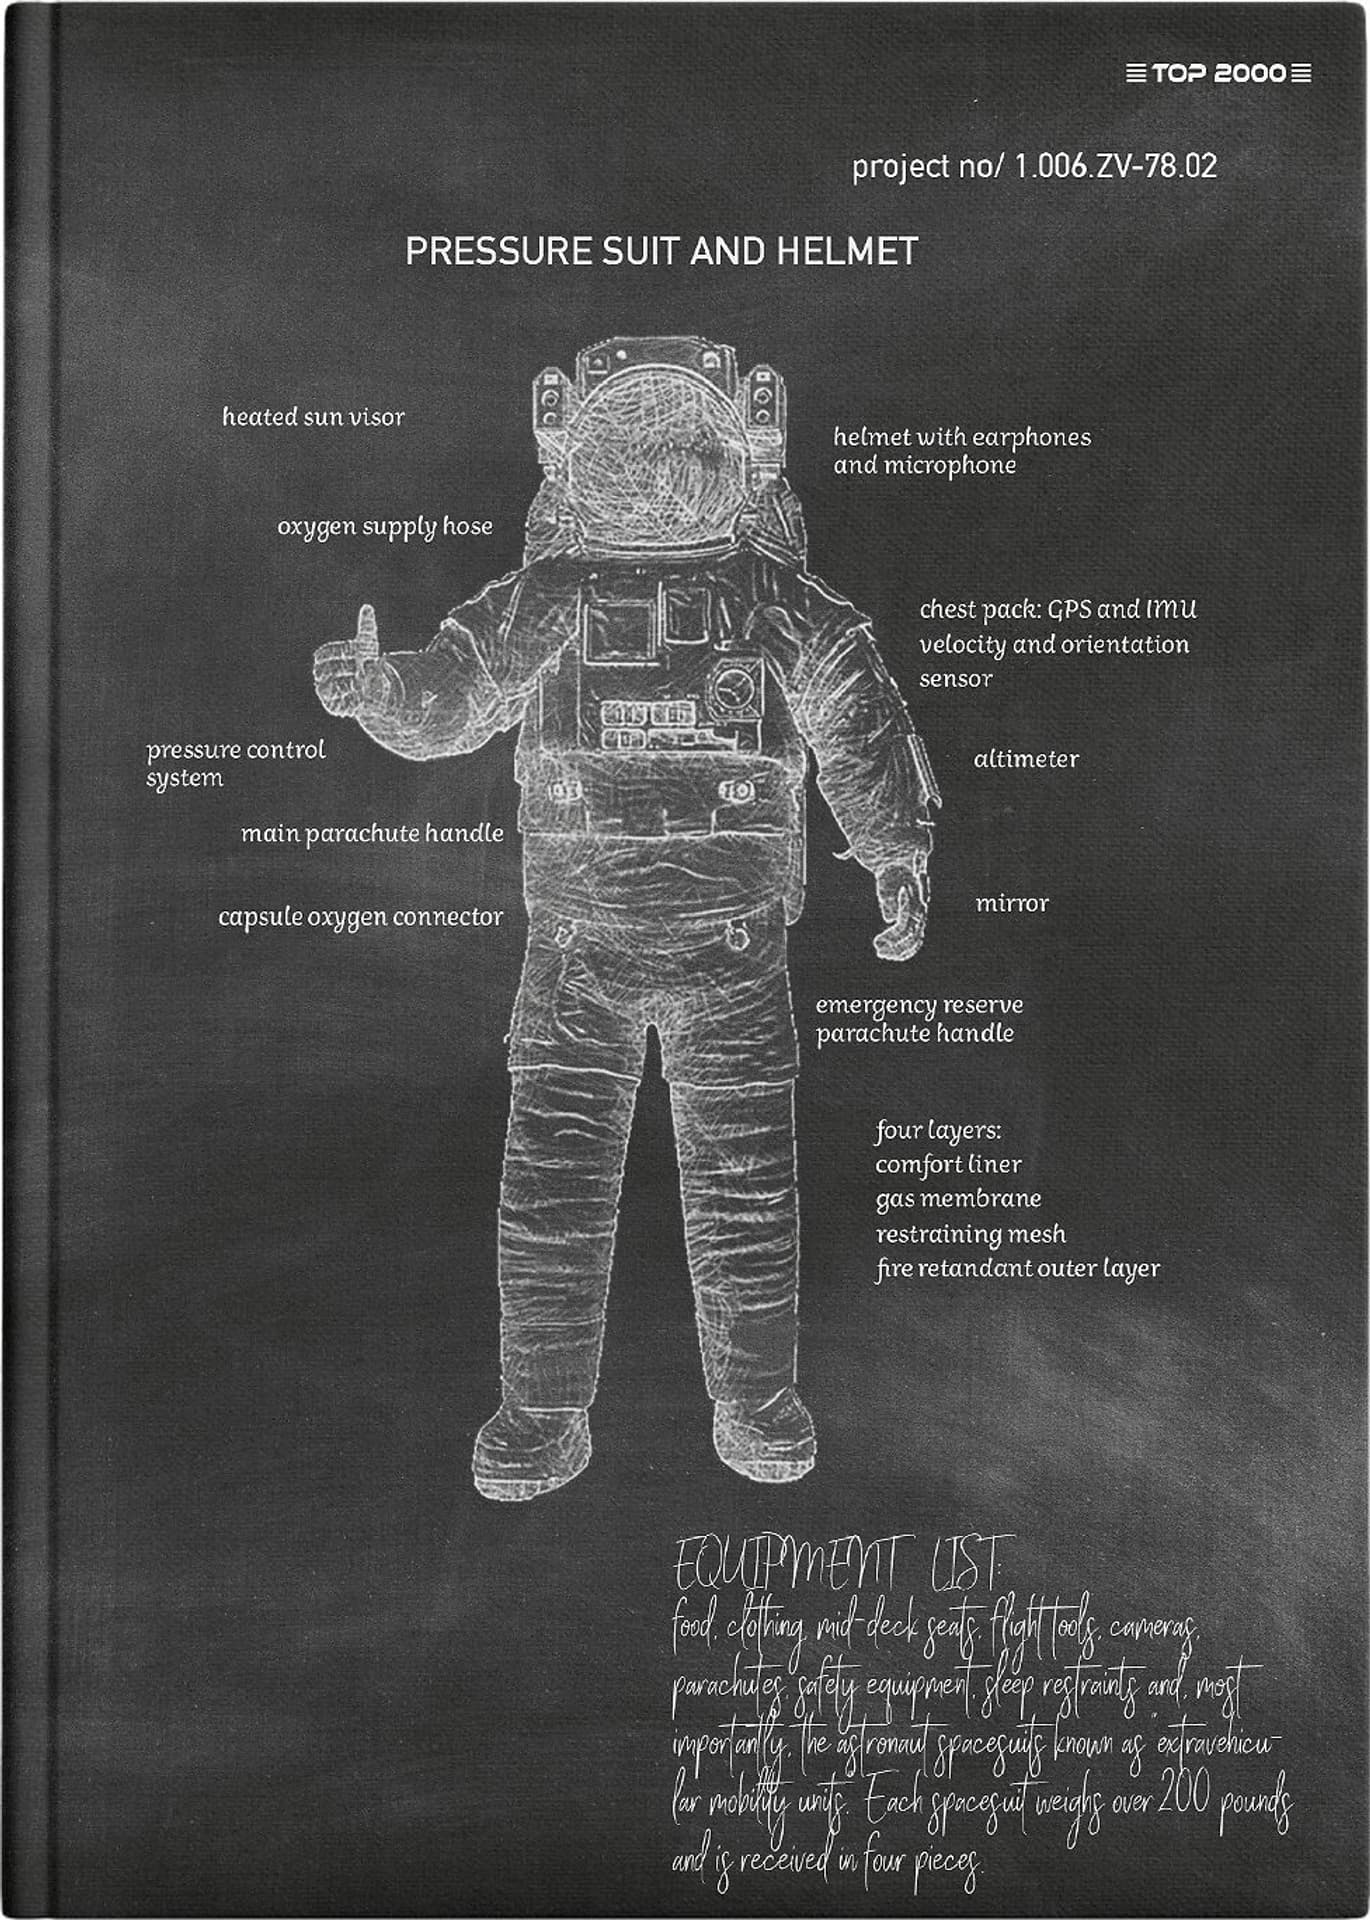 TOP 2000
project no/ 1.006.ZV-78.02
PRESSURE SUIT AND HELMET
heated sun visor
helmet with earphones
and microphone
oxygen supply hose
chest pack: GPS and IMU
velocity and orientation
sensor
pressure control
system
altimeter
main parachute handle
capsule oxygen connector
mirror
emergency reserve
parachute handle
four layers:
comfort liner
gas membrane
restraining mesh
fire retandant outer layer
EQUIPMENT LIST:
food, clothing, mid-deck seats, flight tools, cameras,
parachutes, safety equipment, sleep restraints and, most
importantly, the astronaut spacesuits known as "extravehicu-
lar mobility units. Each spacesuit weighs over 200 pounds
and is received in four pieces.